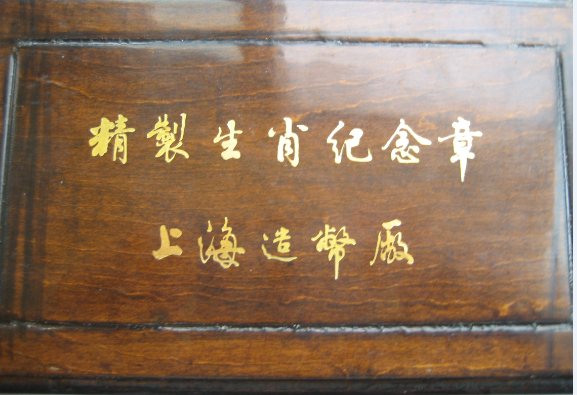 精製生肖纪念章
上海造幣廠